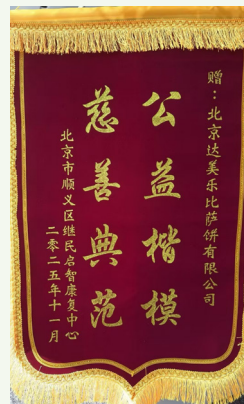 赠：北京达美乐比萨饼有限公司
公益楷模
慈善典范
北京市顺义区继民启智康复中心
二零二五年十一月